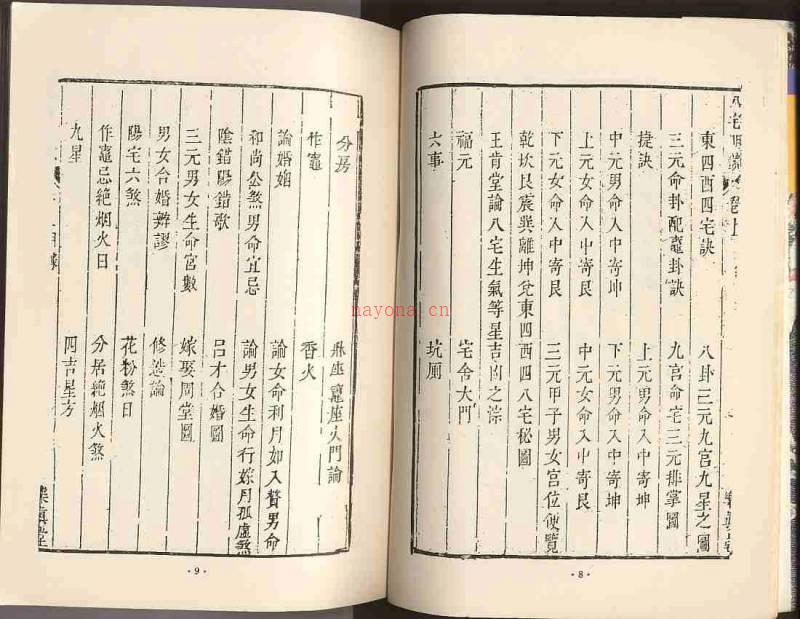 東四西四宅訣
八卦三元九宫九星之圖
三元命卦配竈卦訣
九宫命宅三元排掌圖
捷訣
上元男命入中寄坤
中元男命入中寄坤
下元男命入中寄坤
上元女命入中寄艮
中元女命入中寄艮
下元女命入中寄艮
三元甲子男女宫位便覽
乾坎艮震巽離坤兌東四西四八宅秘圖
王肯堂論八宅生氣等星吉凶之淙
福元
宅舍大門
六事
坑厠
· 8 ·
分房
床座竈座火門論
作竈
香火
論婚姻
論女命利月如入贅男命
和尚公煞男命宜忌
論男女生命行嫁月孤虛煞
陰錯陽錯歌
吕才合婚圖
三元男女生命宮數
嫁娶周堂圖
男女合婚辨謬
修造論
陽宅六煞
花粉煞日
作竈忌絶烟火日
分居絶烟火煞
九星
四吉星方
樂真堂
· 9 ·
nayona.cn